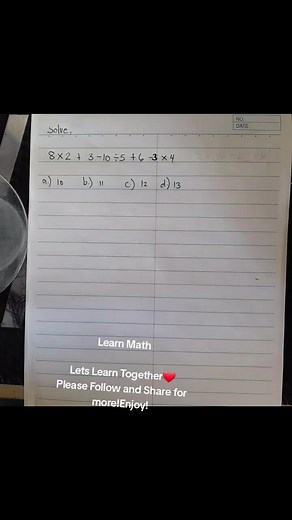 NO.
DATE:
Solve,
8 × 2 + 3 - 10 ÷ 5 + 6 - 3 × 4
a.) 10 b.) 11 c.) 12 d.) 13
Learn Math
Lets Learn Together❤️
Please Follow and Share for
more!Enjoy!